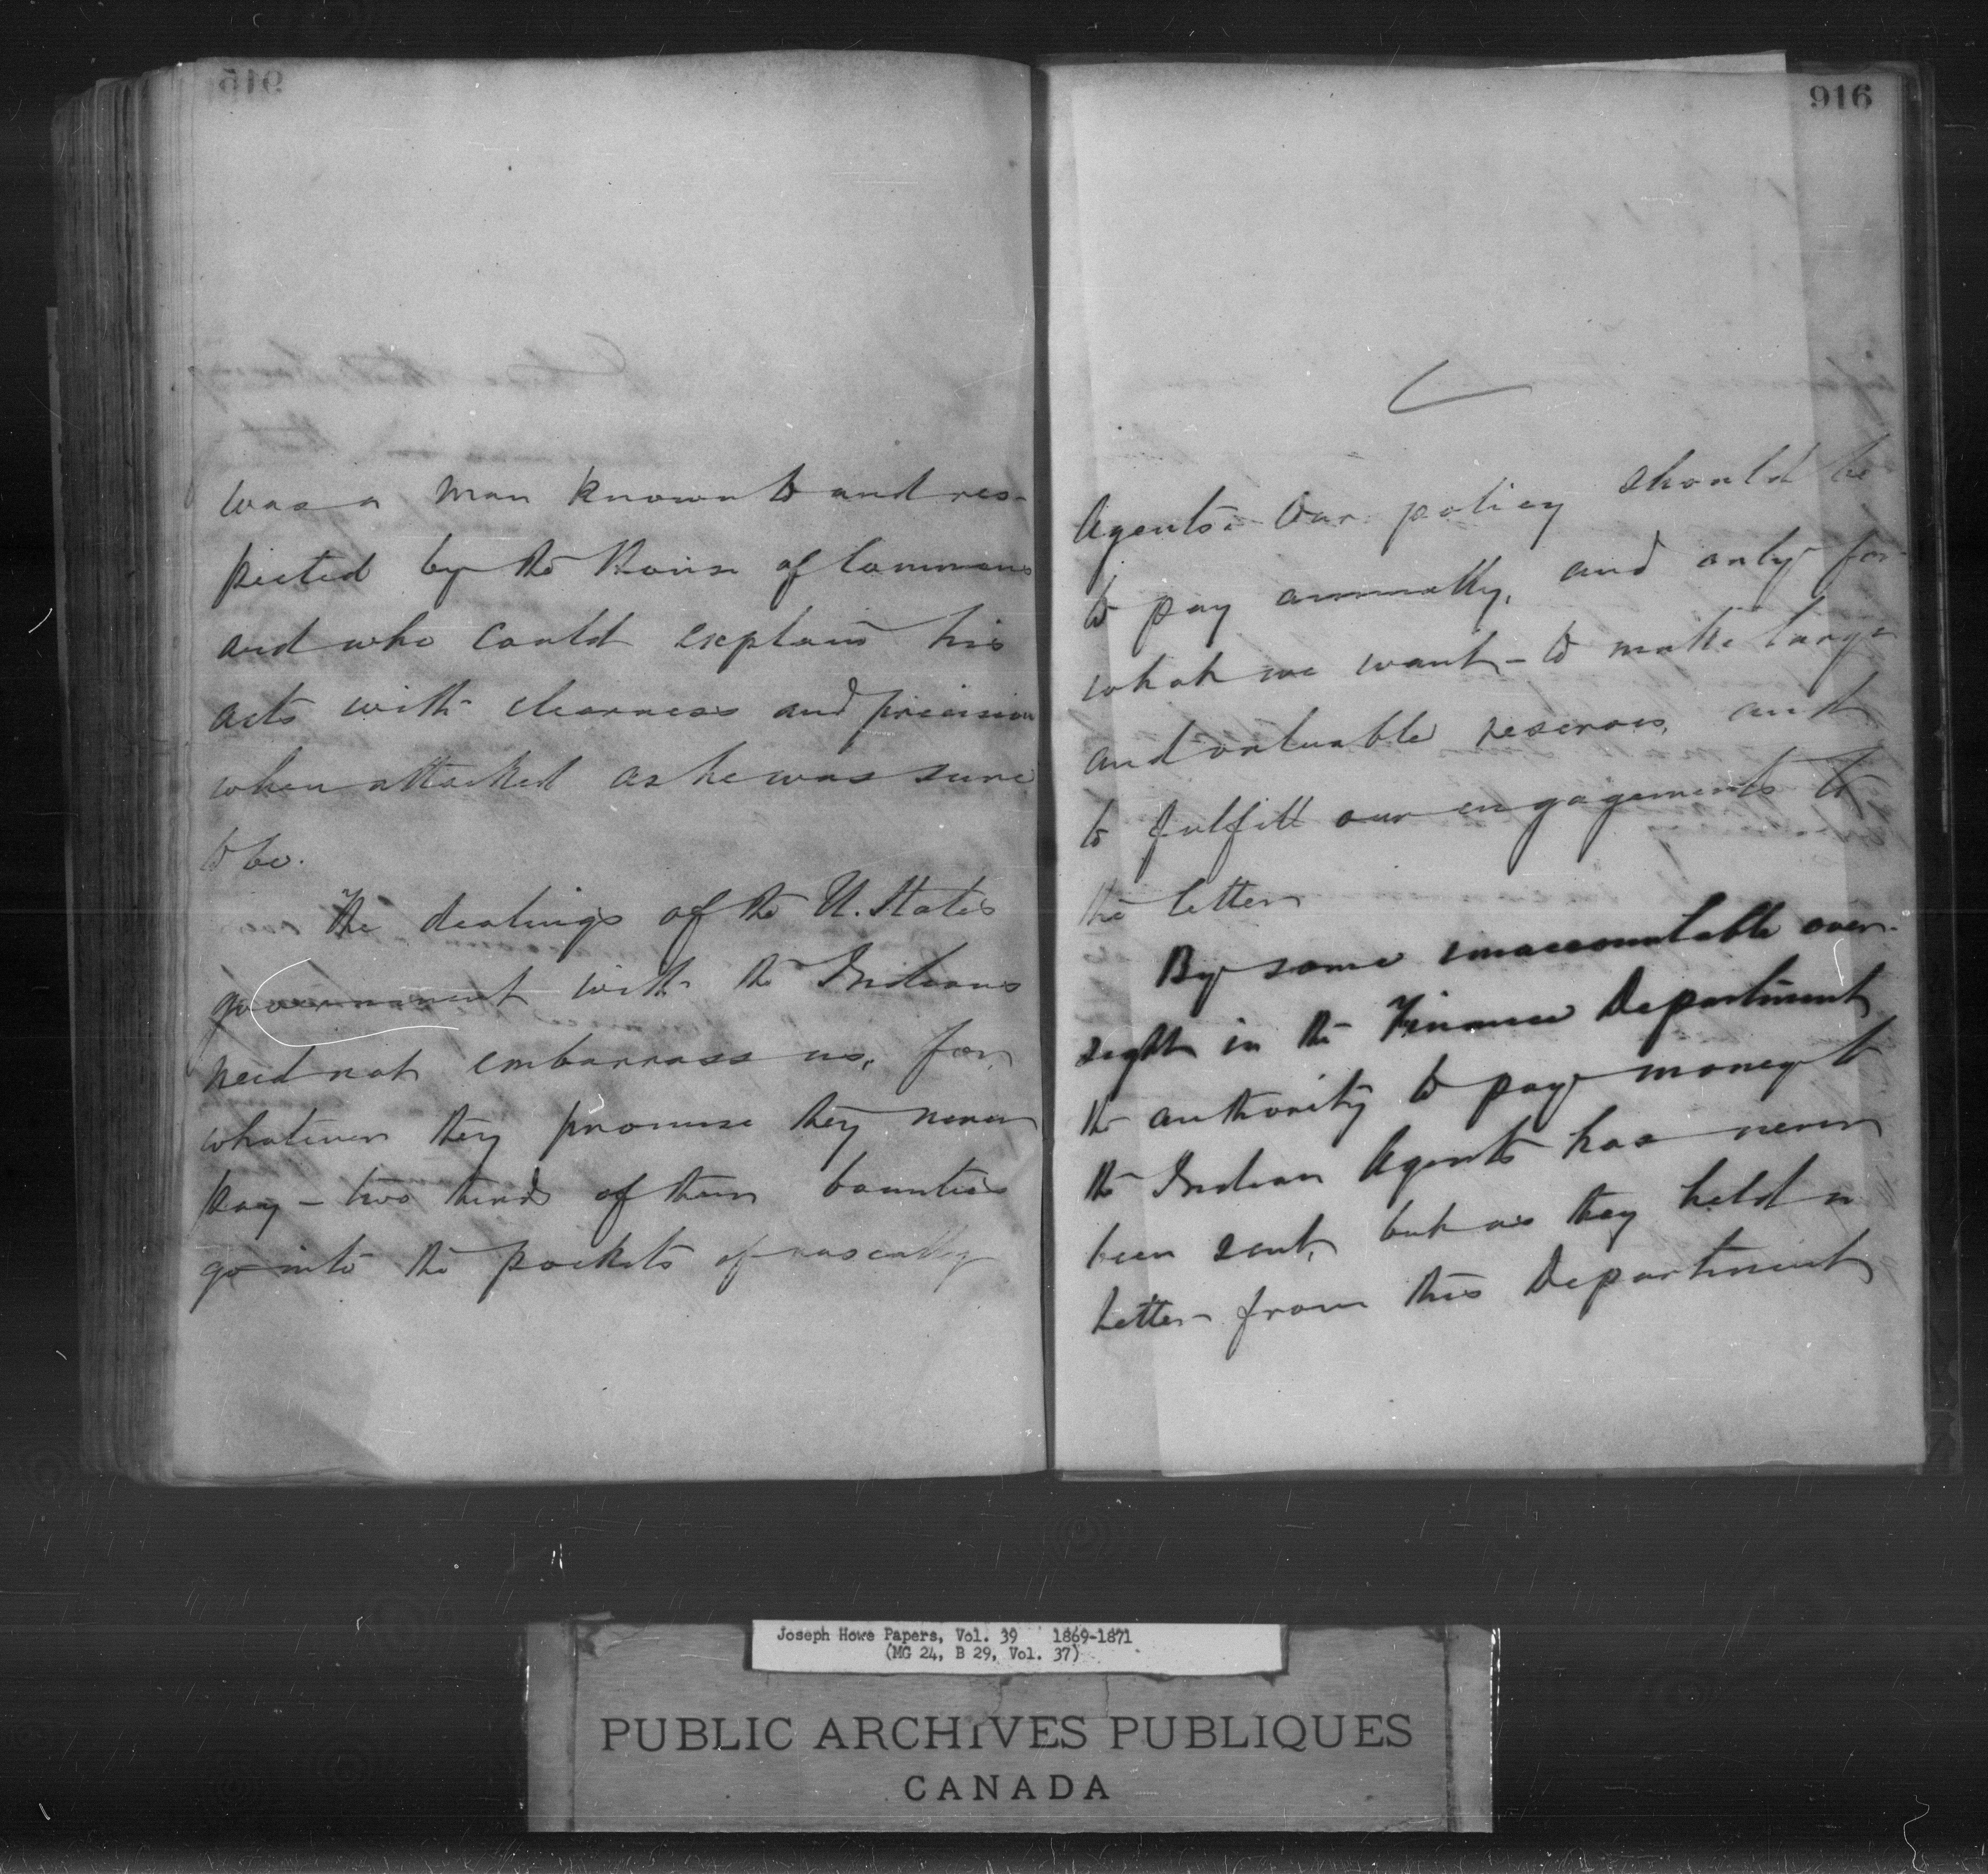 915
was a man known to and res-
pected by the House of Commons
and who could explain his
acts with clearness and precision
when attacked as he was sure
to be.
The dealings of the U. States
government with the Indians
need not embarrass us, for
whatever they promise they never
pay – two thirds of their bounties
go into the pockets of rascally
916
Agents. Our policy should be
to pay annually, and only for
what we want – to make large
and valuable reserves, and
to fulfill our engagements to
the letter
By some unaccountable over-
sight in the Finance Department
the authority to pay money to
the Indian Agents has never
been sent, but as they held a
letter from this Department
Joseph Howe Papers, Vol. 39 1869-1871
(MG 24, B 29, Vol. 37)
PUBLIC ARCHIVES PUBLIQUES
CANADA